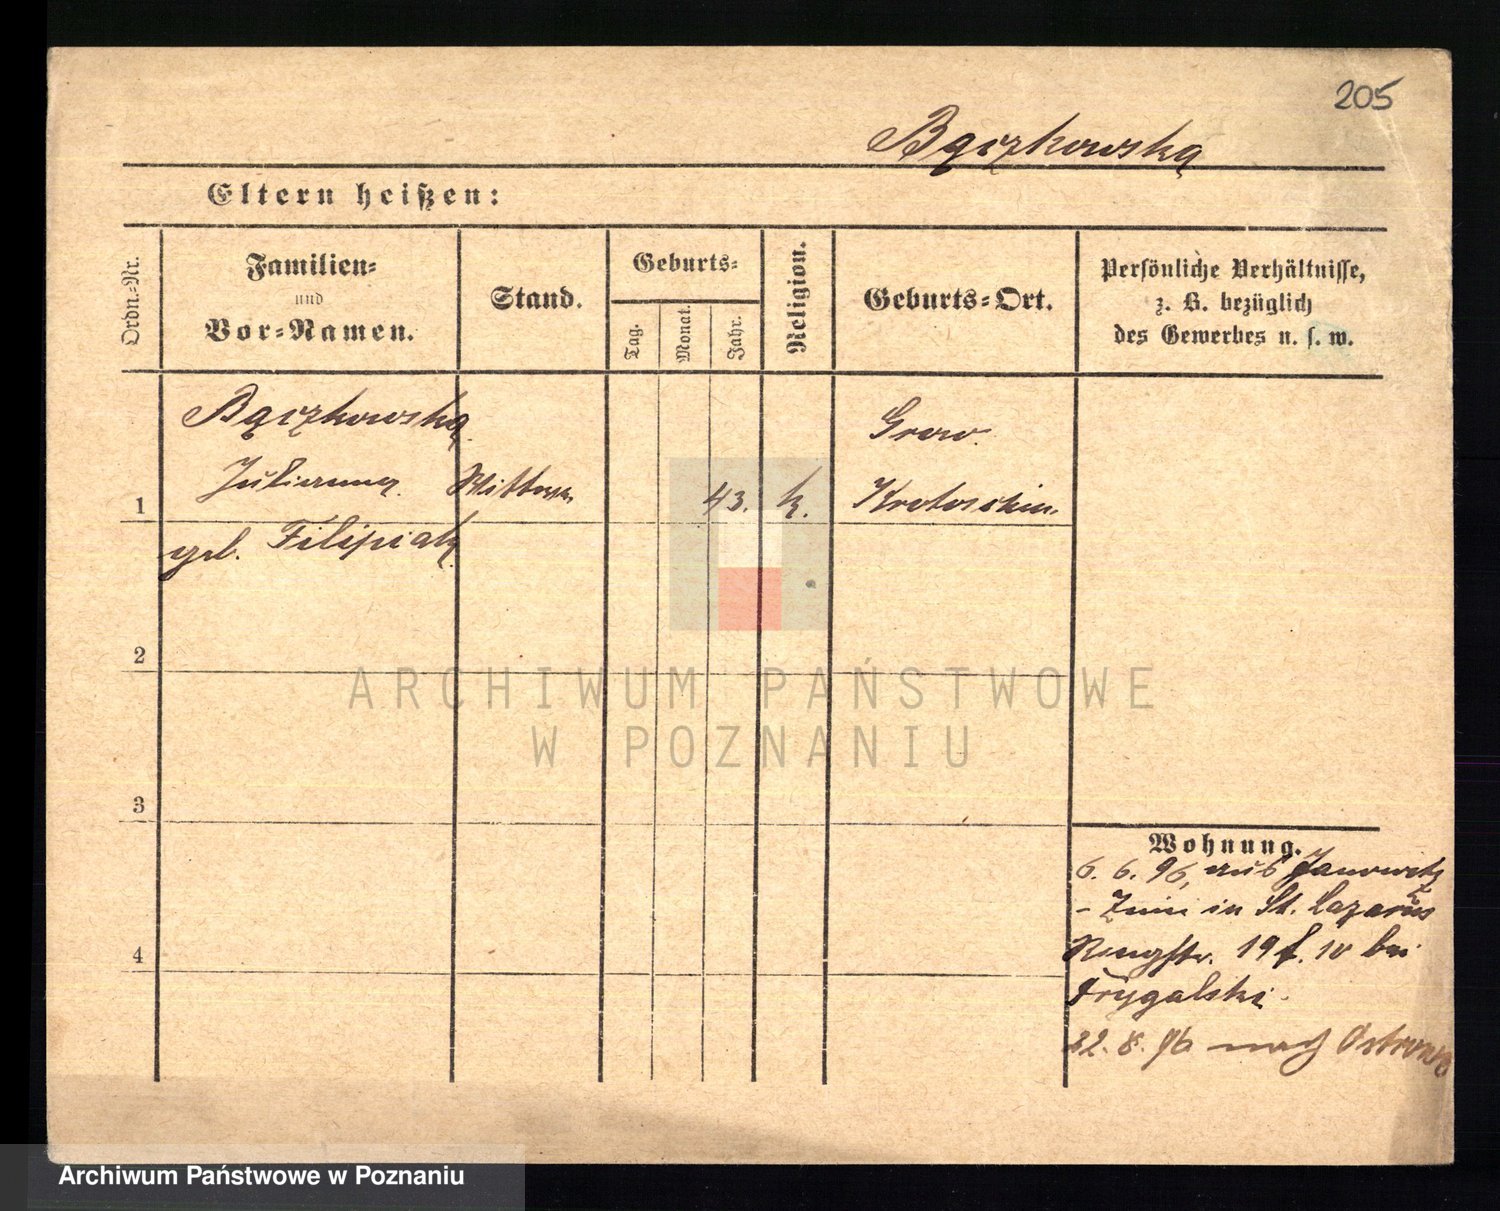 205
Bączkowska
Eltern heißen:
Ordn.-Nr.
Familien-
und
Vor-Namen.
Stand.
Geburts-
Tag.
Monat.
Jahr.
Religion.
Geburts-Ort.
Persönliche Verhältnisse,
z. B. bezüglich
des Gewerbes u. s. w.
Bączkowska
Julianna
geb. Filipiak
1
Wittwe
43.
k.
Krotoschin.
2
3
4
Wohnung.
6. 6. 96, aus Janowitz
- Znin in St. Lazarus
Ringstr. 19 f. 10 bei
Frygalski.
22. 8. 96 nach Ostrowo
ARCHIWUM PAŃSTWOWE
W POZNANIU
Archiwum Państwowe w Poznaniu